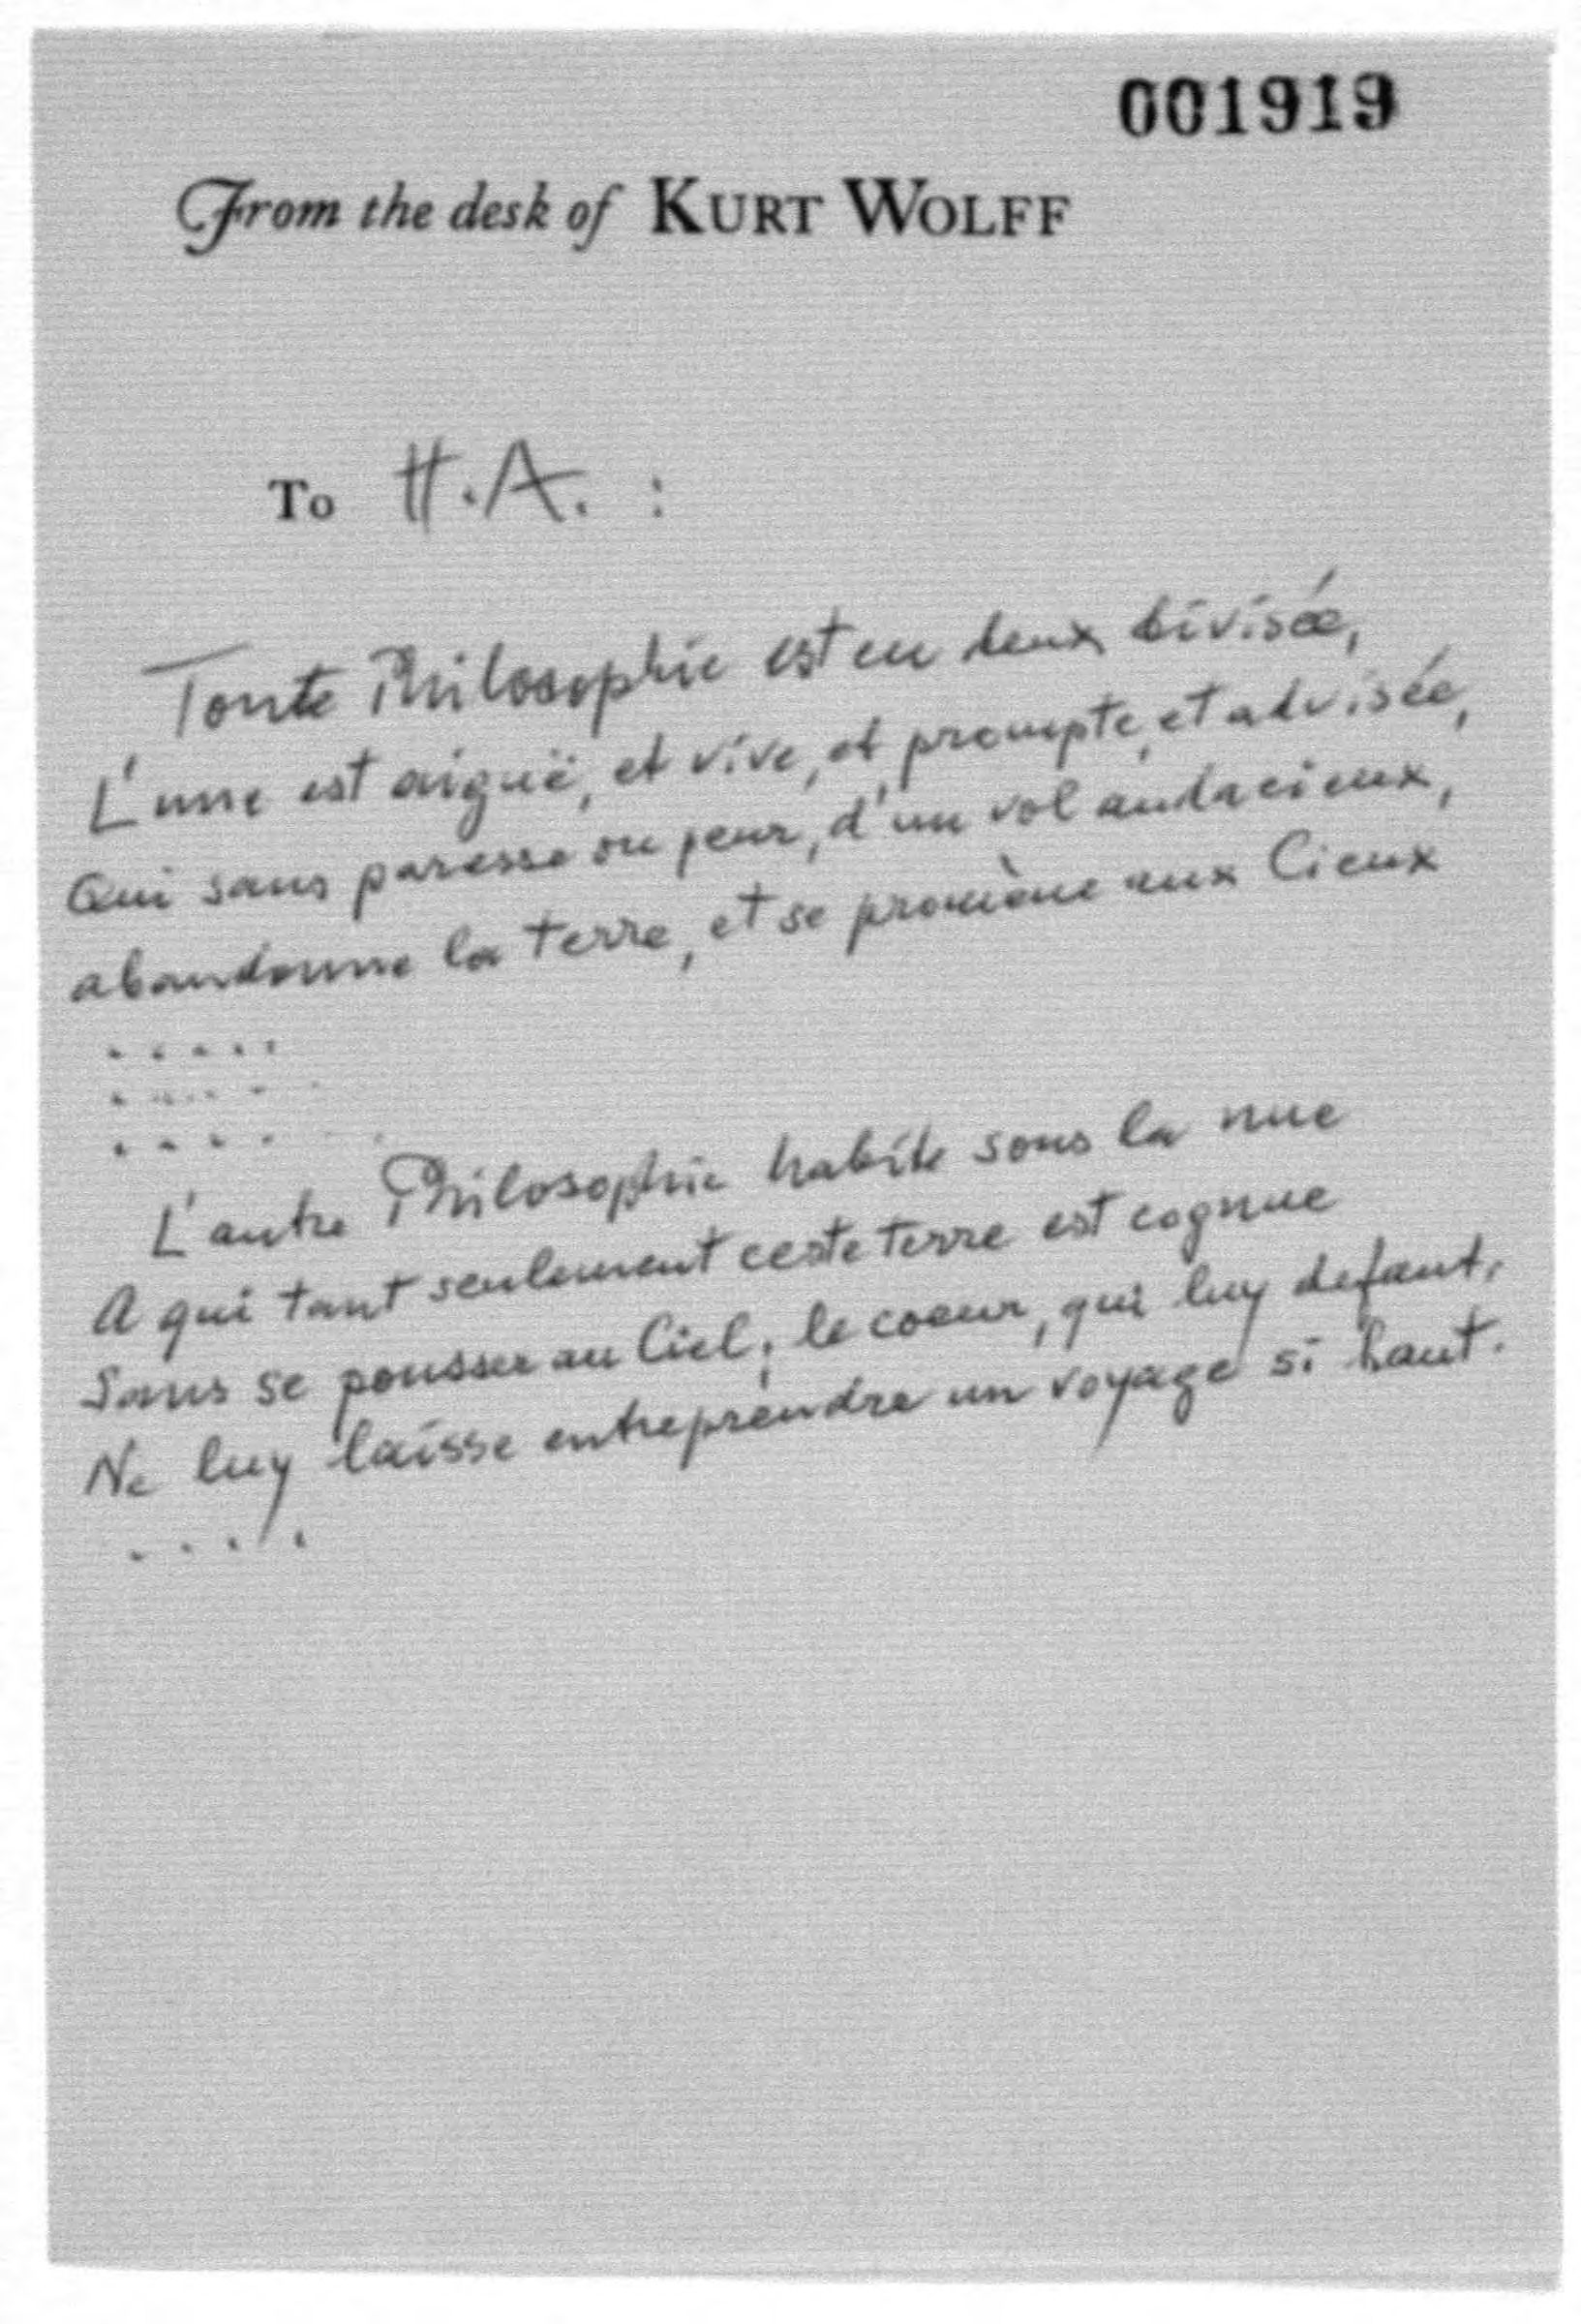 001919
From the desk of KURT WOLFF
To H.A. :
Toute Philosophie est en deux divisée,
L'une est aiguë, et vive, et prompte, et advisée,
Qui sans paresse ou peur, d'un vol audacieux,
abandonne la terre, et se promène aux Cieux
. . . . .
. . . . .
. . . . .
L'autre Philosophie habite sous la nue
A qui tant seulement ceste terre est cognue
Sans se pousser au Ciel; le coeur, qui luy defaut,
Ne luy laisse entreprendre un voyage si haut.
. . . . .